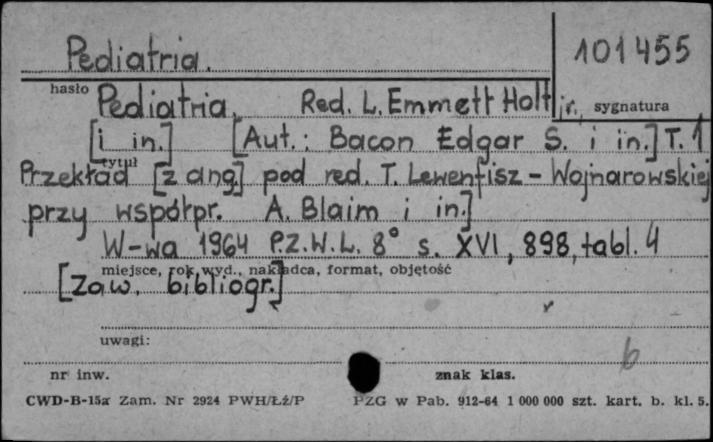 Pediatria.
101455
hasło
Pediatria. Red. L. Emmett Holt jr.
sygnatura
[i in.] [Aut.: Bacon Edgar S. i in.] T. 1
tytuł
Przekład [z ang.] pod red. T. Lewenfisz - Wojnarowskiej
przy współpr. A. Blaim i in.]
W-wa 1964 P.Z.W.L. 8° s. XVI, 898, tabl. 4
miejsce, rok wyd., nakładca, format, objętość
[Zaw. bibliogr.]
uwagi:
b
nr inw.
znak klas.
CWD-B-15a Zam. Nr 2924 PWH/Łź/P PZG w Pab. 912-64 1 000 000 szt. kart. b. kl. 5.